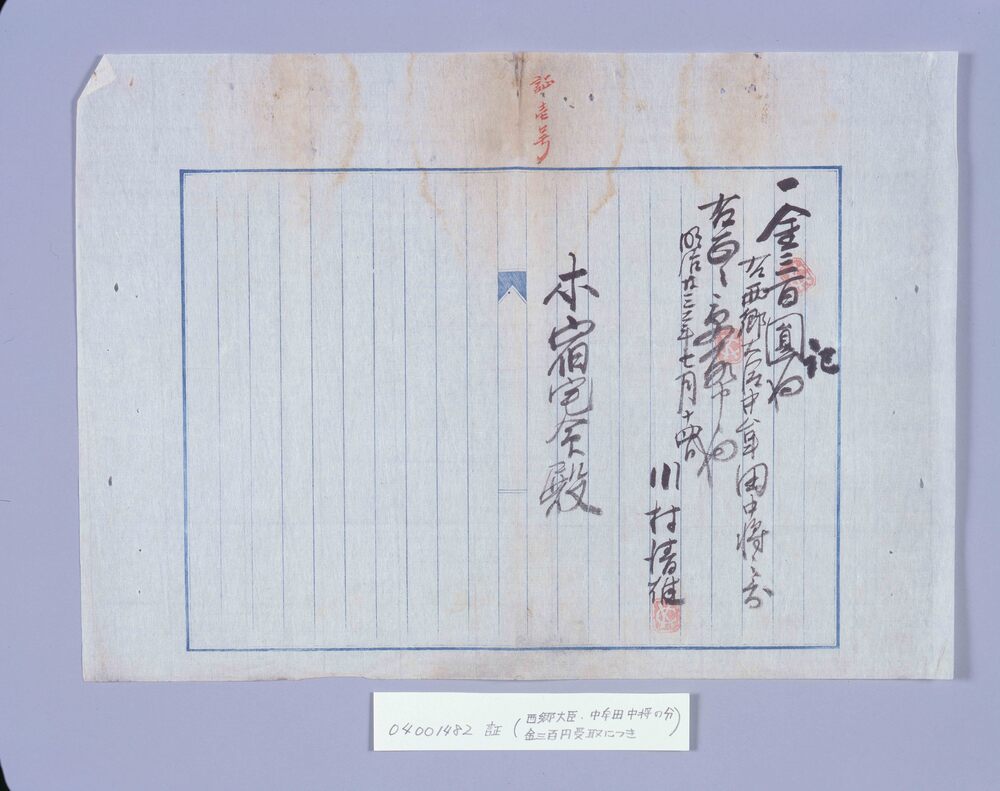 証壱号
記
一金三百圓也
右西郷大臣中牟田中将
右正ニ受取申候也
明治廿三年七月十四日
川村清雄
木宿宅命殿
04001482 証 (西郷大臣、中牟田中将の分
金三百円受取につき)